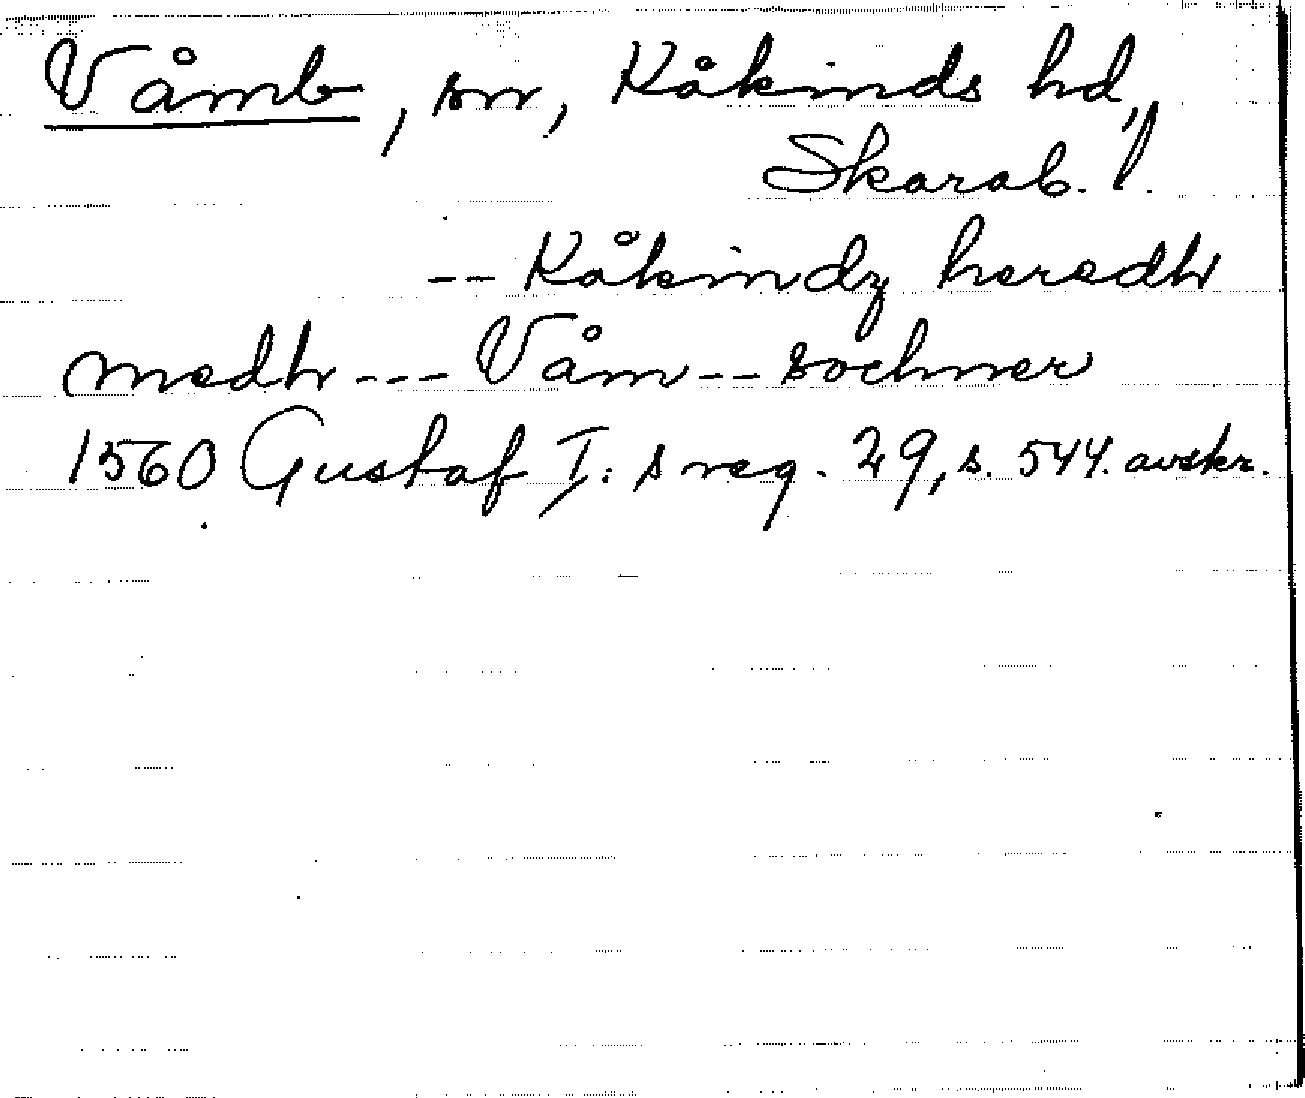 Våmb, sn, Kåkinds hd,
Skarab. l.
-- Kåkindz heredh
medh --- Våm -- sochner
1560 Gustaf I: s reg. 29, s. 544. avskr.